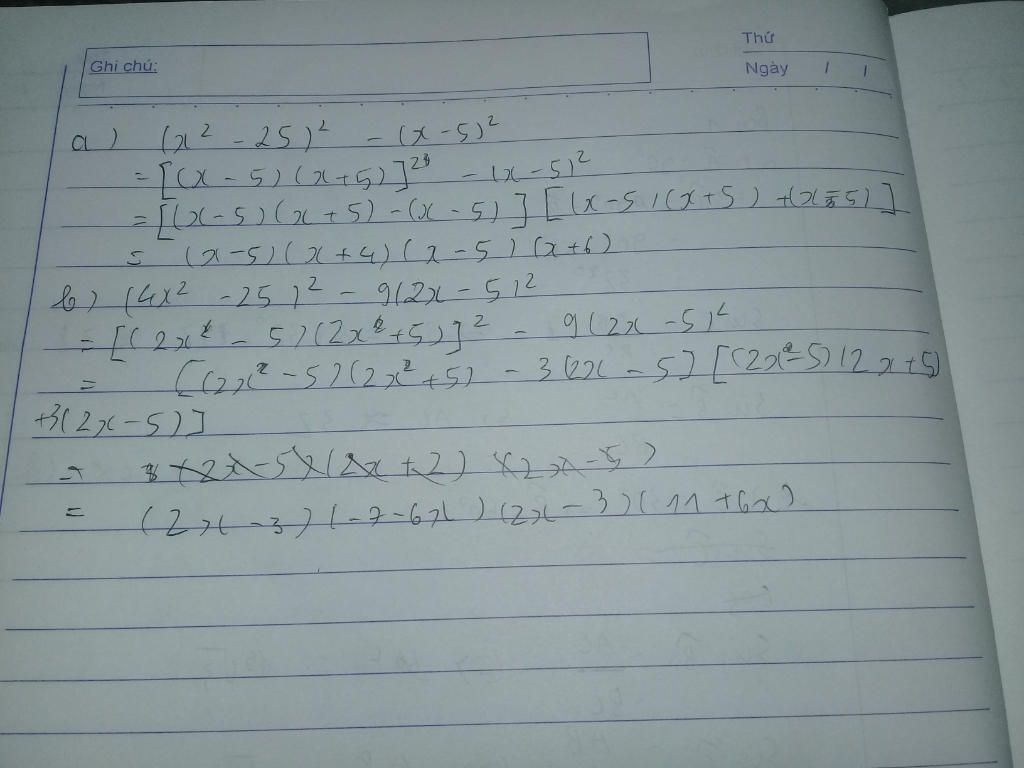 Thứ
Ghi chú:
Ngày / /
a) (x² - 25)² - (x - 5)²
= [(x - 5)(x + 5)]² - (x - 5)²
= [(x - 5)(x + 5) - (x - 5)] [(x - 5)(x + 5) + (x - 5)]
= (x - 5)(x + 4)(x - 5)(x + 6)
b) (4x² - 25)² - 9(2x - 5)²
= [(2x - 5)(2x + 5)]² - 9(2x - 5)²
= [(2x² - 5)(2x² + 5) - 3(2x - 5] [(2x - 5)(2x + 5)
+3(2x - 5)]
= (2x - 5)(2x + 2) (2x - 5)
= (2x - 3)(-7 - 6x)(2x - 3)(11 + 6x)